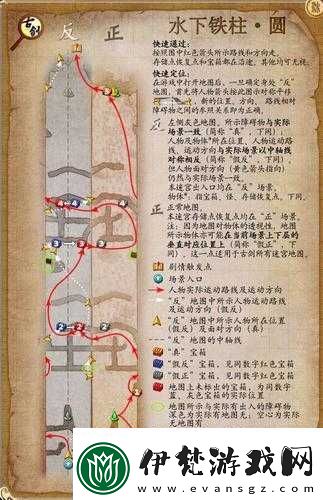 古剑
反 正
水下铁柱·圆
快速通过：
按照图中红色箭头所示路线和方向走。
存储点恢复点和宝箱都在沿途。其他均可无视。
快速定位：
在游戏中打开地图后，一旦确定身处“反”
地图，首先将人物箭头按此图示对称中移
新的位置、方向、路线相对
障碍物之间的参照关系即为正确。
反
左侧灰色地图，所示障碍物与实际
场景一致（简称“真”，下同）；
人物及物体*所在位置、人物运动路
线、运动方向与实际场景以中轴线
对称相反（简称“假反”，下同）
但人物面对方向（黄色箭头指向）
仍然与实际场景一致。
本迷宫出入口均在“反”场景。
物体*：指宝箱、怪、存储恢复点，下同。
正
正常地图。
本迷宫存储点恢复点均在“正”场景。
注：因为地图对物体的透视性，地图
所示物体亦可能在当前场景上下层的
垂直对应位置上（简称“假正”，下
同），这一点适用于古剑所有迷宫地图。
剧情触发点
场景入口
人物实际运动路线及运动方向
“反”地图中所示人物运动路线
及运动方向（假反）
“反”地图中所示人物所在位置
（假反）及面对方向（真）
“反”地图的中轴线
“真”宝箱
“假反”宝箱，见同数字红色宝箱
“假正”宝箱，见同数字红色宝箱
地图上未标出的宝箱，为同数字
蓝、灰色宝箱的实际位置
地图所示与实际有出入的障碍物
深色为实际有地图无；空心为实际
无地图有
4 4
3 3
2 2
伊梵游戏网
www.evansgz.com